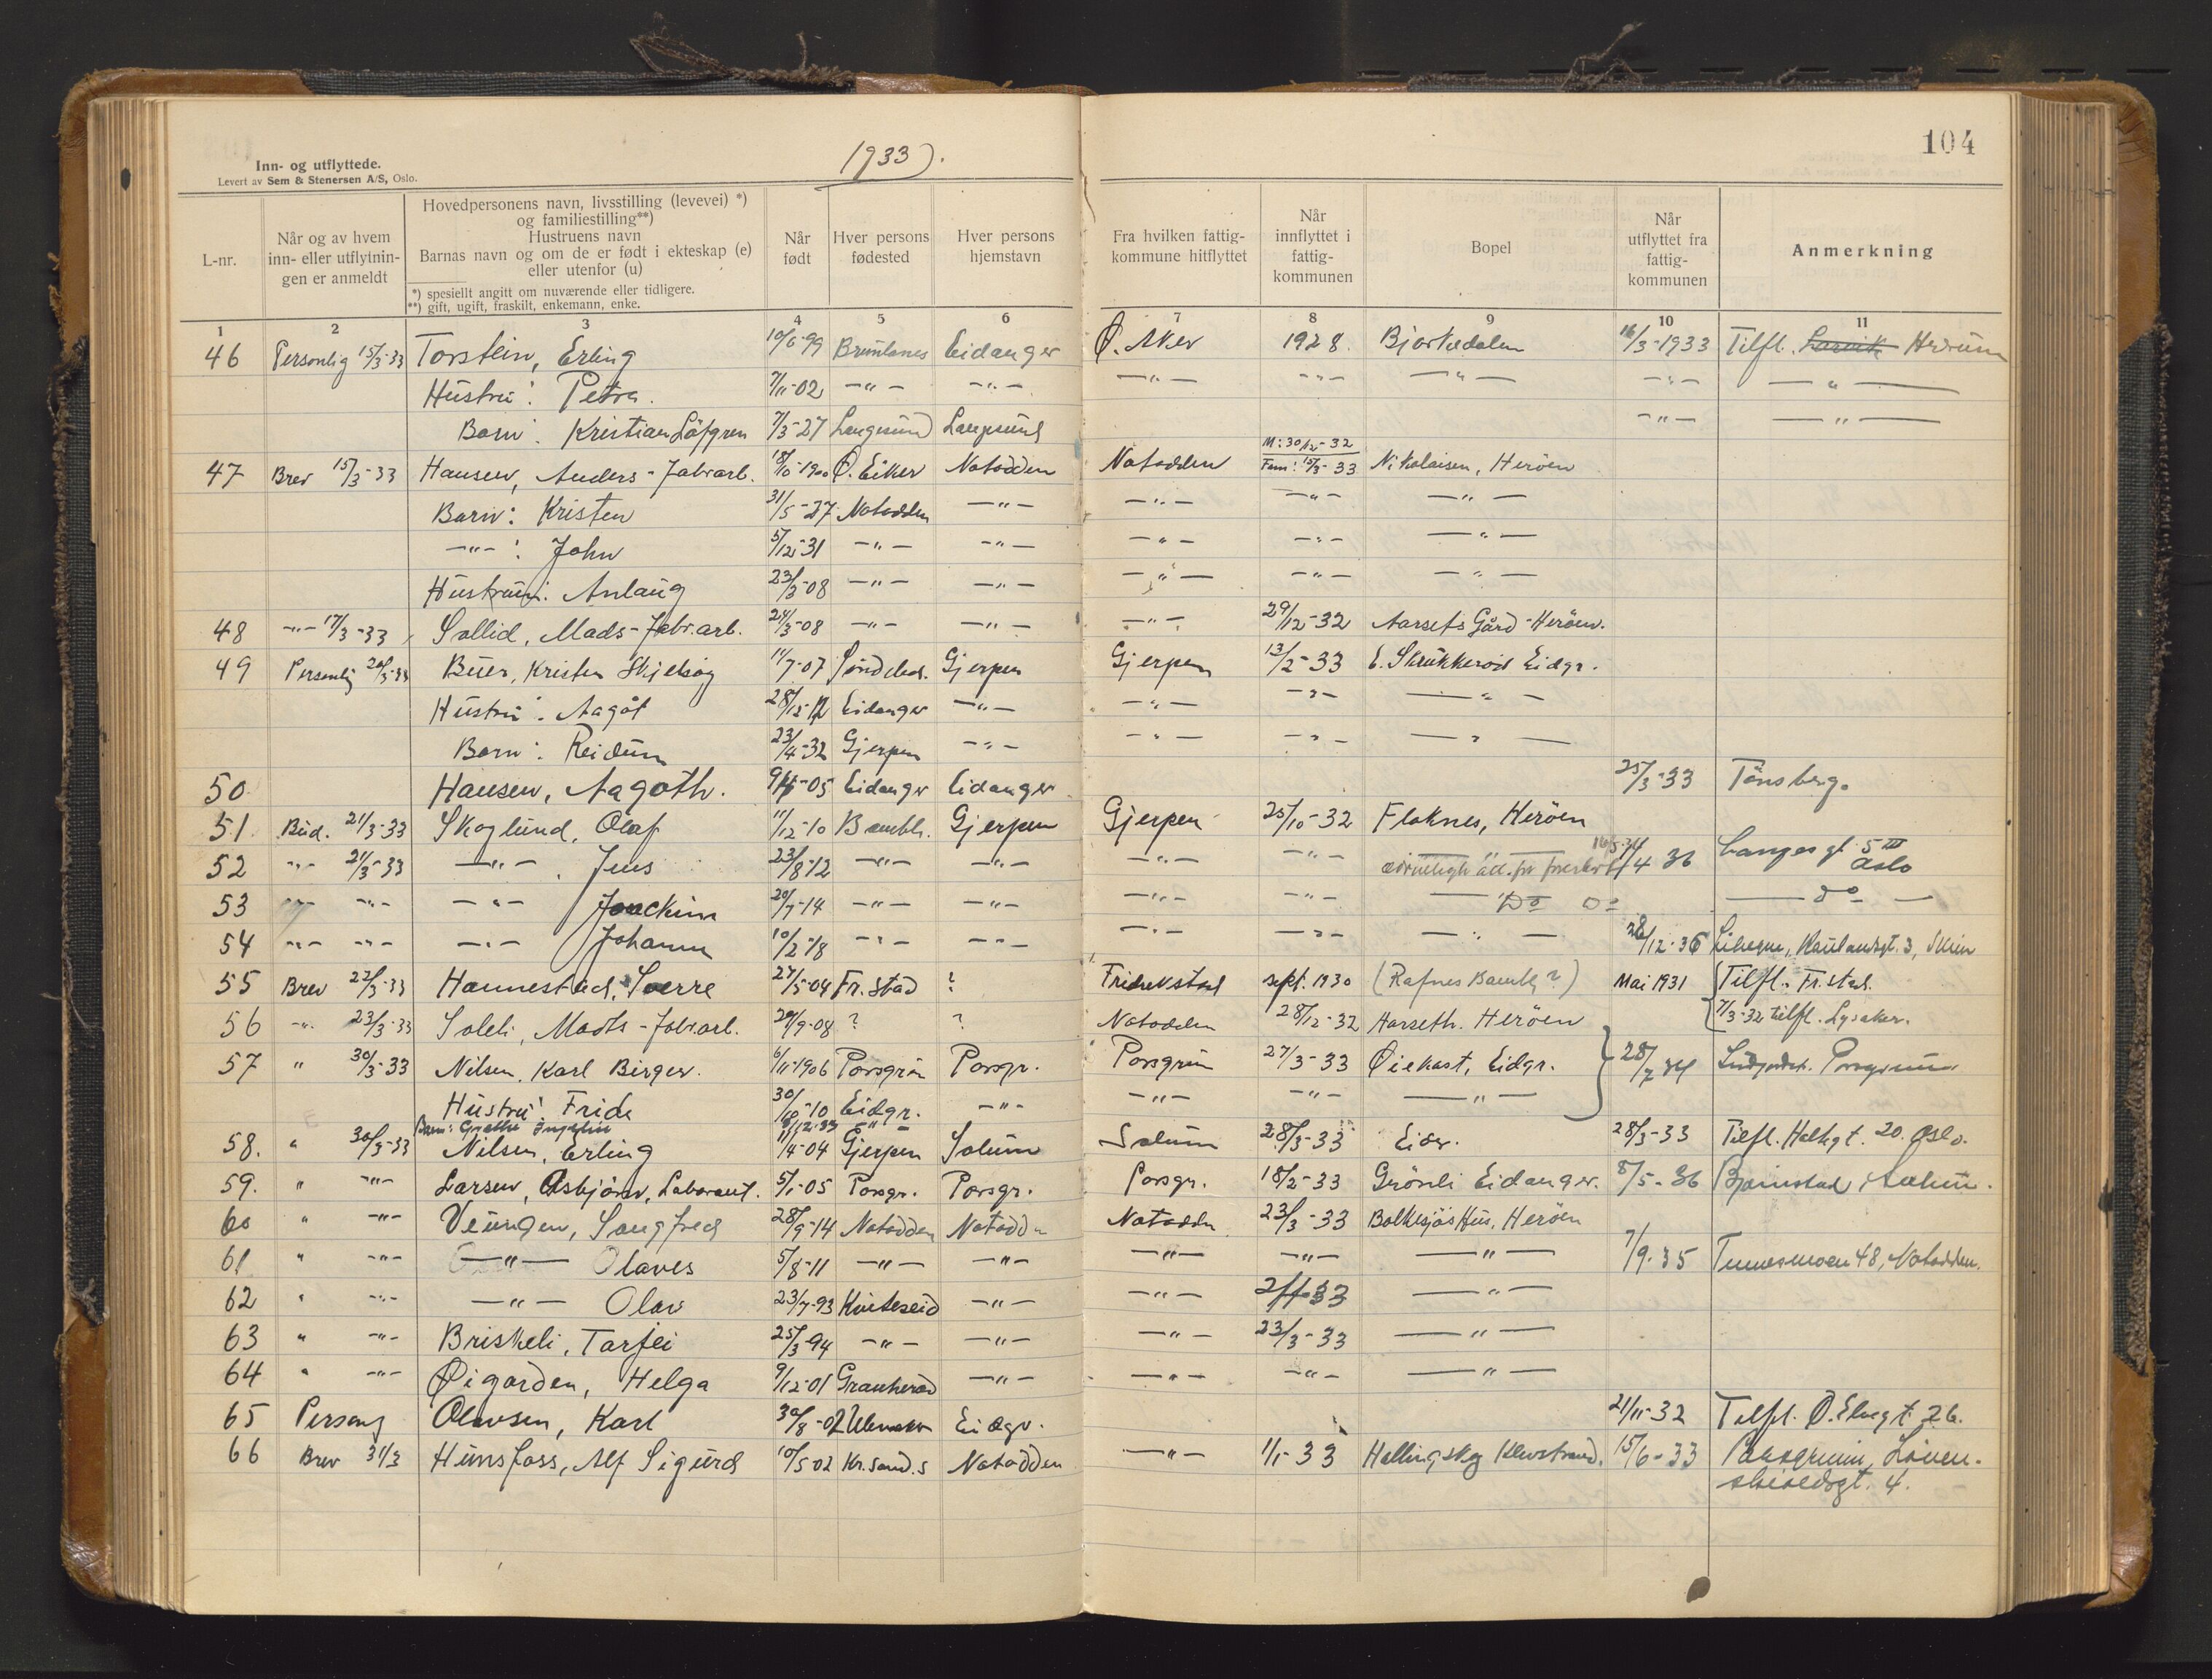 104
1933.
Inn- og utflyttede.
Levert av Sem & Stenersen A/S, Oslo.
L-nr.
Når og av hvem inn- eller utflytningen er anmeldt
Hovedpersonens navn, livsstilling (levevei) *)
og familiestilling**)
Hustruens navn
Barnas navn og om de er født i ekteskap (e)
eller utenfor (u)
*) spesielt angitt om nuværende eller tidligere.
**) gift, ugift, fraskilt, enkemann, enke.
Når født
Hver persons fødested
Hver persons hjemstavn
Fra hvilken fattigkommune hitflyttet
Når innflyttet i fattigkommunen
Bopel
Når utflyttet fra fattigkommunen
Anmerkning
1 2 3 4 5 6 7 8 9 10 11
46 Personlig 15/3-33 Torstein, Erling 10/6-99 Brunlanes Eidanger Ø. Aker 1928. Bjørkedalen 16/3-1933 Tilfl. Larvik Hedrum
Hustru: Petra. 7/11-02 -"- -"- -"- -"- -"- -"- -"-
Barn: Kristian Löfgren 7/3-27 Langesund Langesund -"- -"-
47 Brev 15/3-33 Hansen, Anders - Fabr.arb. 18/10-1900 Ø. Eiker Notodden Notodden M: 30/12-32 Fam: 15/3-33 Nikolaisen, Herøen
Barn: Kristen 31/5-27 Notodden -"- -"- -"- -"-
-"-: John 5/12-31 -"- -"- -"- -"- -"-
Hustru: Anlaug 23/3-08 -"- -"- -"- -"- -"-
48 -"- 17/3-33 Sollid, Mads - Fabr.arb. 24/3-08 -"- -"- -"- 29/12-32 Aarsets Gård - Herøen.
49 Personlig 20/3-33 Buer, Kristen Skjelsog 11/7-07 Gjerpen Gjerpen 13/2-33 E. Skrukkerød Eidgr.
Hustru: Aagot 28/12-12 Eidanger -"- -"- -"- -"-
Barn: Reidun 23/4-32 Gjerpen -"- -"- -"- -"-
50 Hansen, Aagoth. Eidanger Eidanger 25/3-33 Tønsberg.
51. Bud. 21/3-33 Skoglund, Olaf 11/12-10 Bambl. Gjerpen Gjerpen 25/10-32 Flaknes, Herøen
52 -"- 21/3-33 -"- , Jens 23/8-12 -"- -"- -"- -"- 1/4 36 Langes gt. 5 III Oslo
53 -"- -"- -"- Joackim 20/7-14 -"- -"- -"- -"- Do Do - do -
54 -"- -"- -"- Johann 10/2-18 -"- -"- -"- -"- -"- 28/12-36 3, Skien
55 Brev 22/3-33 Hannestad, Sverre 27/5-04 Fr.stad ? Fridrekstad sept. 1930 (Rafnes Bambl?) Mai 1931 Tilfl. Fr.stad.
7/3-32 tilfl. Lysaker.
56 -"- 23/3-33 Soleli, Mads - Fabr.arb. 29/9-08 ? ? Notodden 28/12-32 Aarseth. Herøen
57 " 30/3-33 Nilsen, Karl Birger. 6/11-1906 Porsgrün Porsgr. Porsgrün 27/3-33 Øiekast, Eidgr. 28/7 34 Porsgrunn
Hustru: Frida 30/10-10 Eidgr. -"- -"- -"- -"-
Barn: Grethe Ingelin
58. " 30/3-33 Nilsen, Erling 11/4-04 Gjerpen Solum Solum 28/3-33 Eidgr. 28/3-33 Tilfl. Helhgt. 20. Oslo.
59. " -"- Larsen, Asbjörn, Laborant. 5/1-05 Porsgr. Porsgr. Porsgr. 18/2-33 Grönli Eidanger. 8/5-36 Bjørnstad i Solum.
60 " -"- Veungen, Sangfred 28/9-14 Notodden Notodden Notodden 23/3-33 Bolkesjøs Hus, Herøen
61 " -"- -"- Olaves 5/8-11 -"- -"- -"- -"- -"- 7/9-35 Tinnesmoen 48, Notodden.
62 " -"- -"- Olav 23/7-93 Kviteseid -"- -"- -"-
63 " -"- Briskeli, Tarjei 25/3 94 -"- -"- -"- 23/3-33 -"-
64 " -"- Øigarden, Helga 9/12-01 Gransherad -"- -"- -"- -"-
65 Personlig Olavsen, Karl 30/8-02 Eidgr. 21/11-32 Tilfl. Ø. Elvegt. 26.
66 Brev 31/3 Hunsfoss, Alf Sigurd 10/5 02 Kr.sand.S Notodden -"- 1/1-33 Hellingskog Klevstrand. 15/6-33 Porsgrunn, Löven-
skioldsgt. 4.